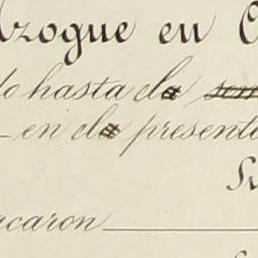 Azogue en
do hasta el
en el presente
acaron